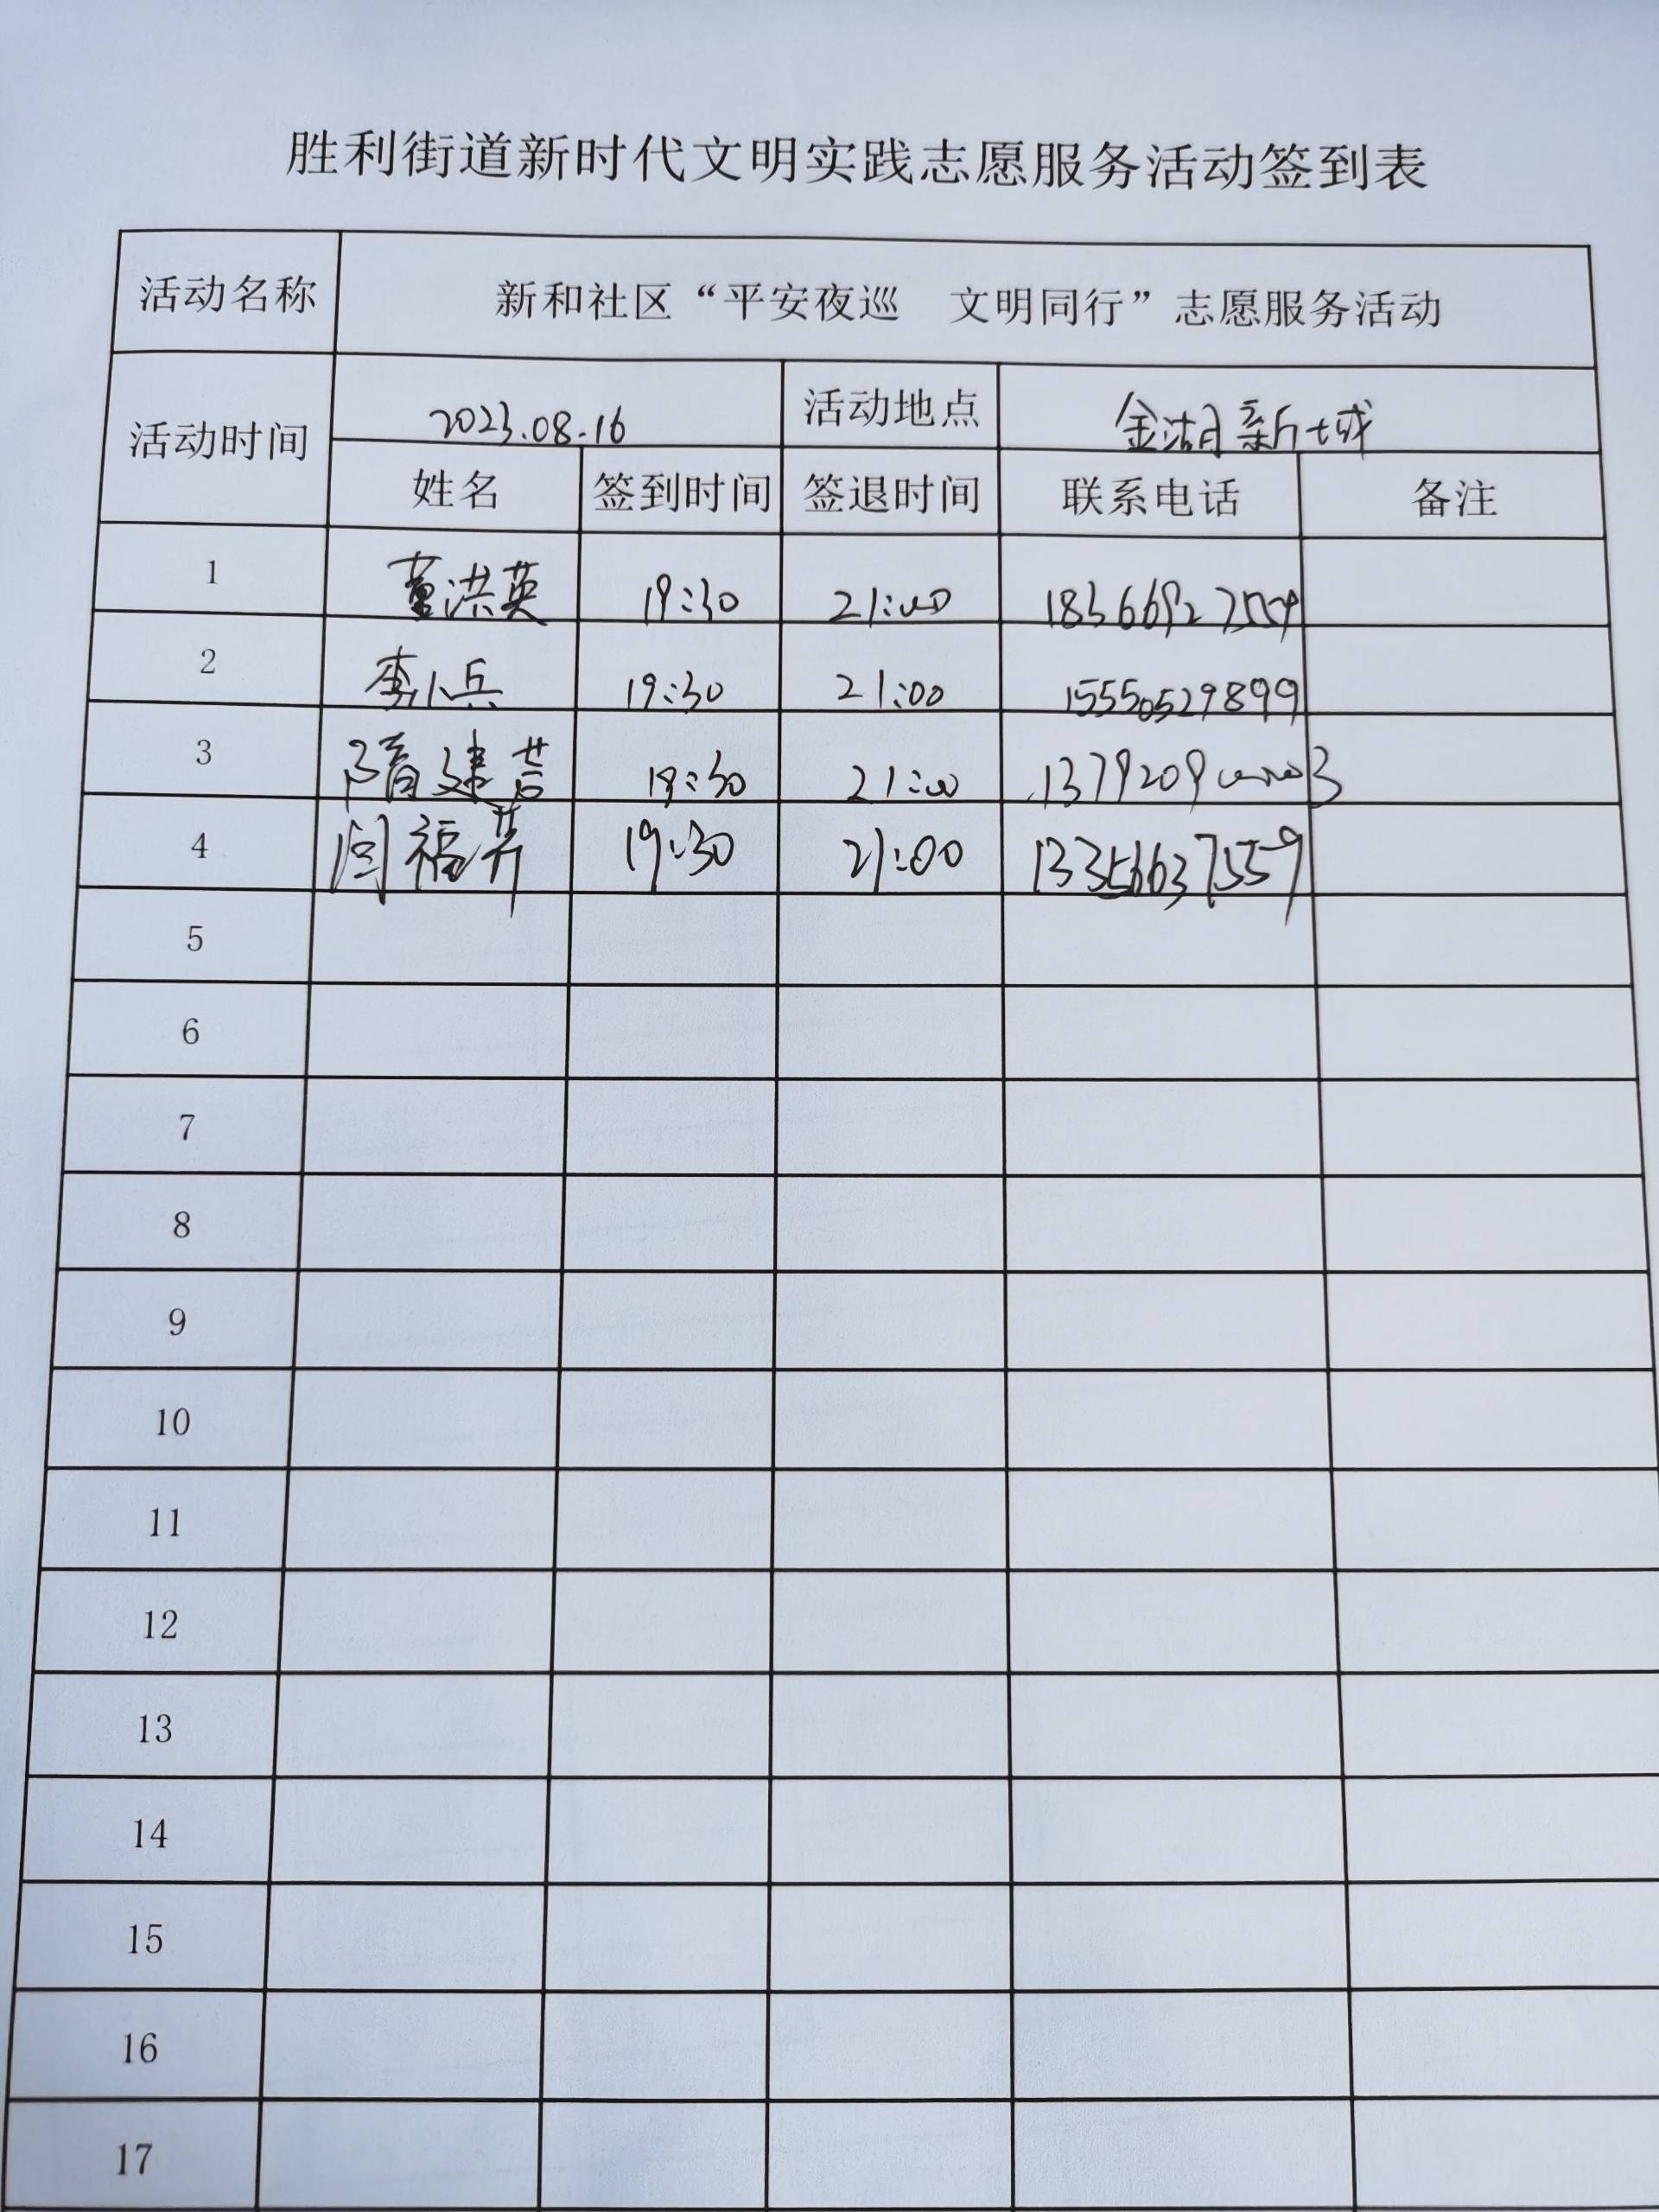 胜利街道新时代文明实践志愿服务活动签到表
活动名称 新和社区“平安夜巡 文明同行”志愿服务活动
活动时间 2023.08.16 活动地点 金湖新城
姓名 签到时间 签退时间 联系电话 备注
1 董洪英 19:30 21:00
2 李小兵 19:30 21:00 15550529899
3 隋建芸 19:30 21:00
4 闫福芹 19:30 21:00 13356637559
5
6
7
8
9
10
11
12
13
14
15
16
17